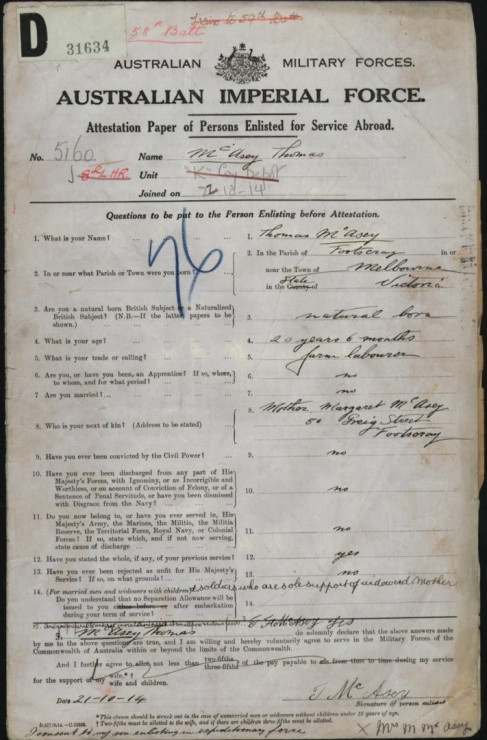 D
31634
58th Batt
AUSTRALIAN MILITARY FORCES.
AUSTRALIAN IMPERIAL FORCE.
Attestation Paper of Persons Enlisted for Service Abroad.
No. 5160 Name McAsey Thomas
Unit
Joined on 12-14
Questions to be put to the Person Enlisting before Attestation.
1. What is your Name? 1. Thomas McAsey
2. In or near what Parish or Town were you born? 2. In the Parish of Footscray in or
near the Town of Melbourne
in the State County of Victoria
3. Are you a natural born British Subject or a Naturalised
British Subject? (N.B.—If the latter, papers to be
shown.) 3. natural born
4. What is your age? 4. 20 years 6 months
5. What is your trade or calling? 5. farm labourer
6. Are you, or have you been, an Apprentice? If so, where,
to whom, and for what period? 6. no
7. Are you married? 7. no
8. Who is your next of kin? (Address to be stated) 8. Mother Margaret McAsey
50 Greig Street
Footscray
9. Have you ever been convicted by the Civil Power? 9. no
10. Have you ever been discharged from any part of His
Majesty's Forces, with Ignominy, or as Incorrigible and
Worthless, or on account of Conviction of Felony, or of a
Sentence of Penal Servitude, or have you been dismissed
with Disgrace from the Navy? 10. no
11. Do you now belong to, or have you ever served in, His
Majesty's Army, the Marines, the Militia, the Militia
Reserve, the Territorial Force, Royal Navy, or Colonial
Forces? If so, state which, and if not now serving,
state cause of discharge 11. no
12. Have you stated the whole, if any, of your previous service? 12. yes
13. Have you ever been rejected as unfit for His Majesty's
Service? If so, on what grounds? 13. no
14. (For married men and widowers with children & soldiers who are sole support of widowed mother
Do you understand that no Separation Allowance will be
issued to you either before or after embarkation
during your term of service? 14.
McAsey Yes
I, McAsey Thomas do solemnly declare that the above answers made
by me to the above questions are true, and I am willing and hereby voluntarily agree to serve in the Military Forces of the
Commonwealth of Australia within or beyond the limits of the Commonwealth.
And I further agree to allot not less than two-fifths three-fifths of the pay payable to me from time to time during my service
for the support of my wife.*†
wife and children.
Date 21-10-14 T McAsey
Signature of person enlisted
* This clause should be struck out in the case of unmarried men or widowers without children under 18 years of age.
† Two-fifths must be allotted to the wife, and if there are children three-fifths must be allotted.
I consent to my son enlisting in expeditionary force
x Mrs M McAsey